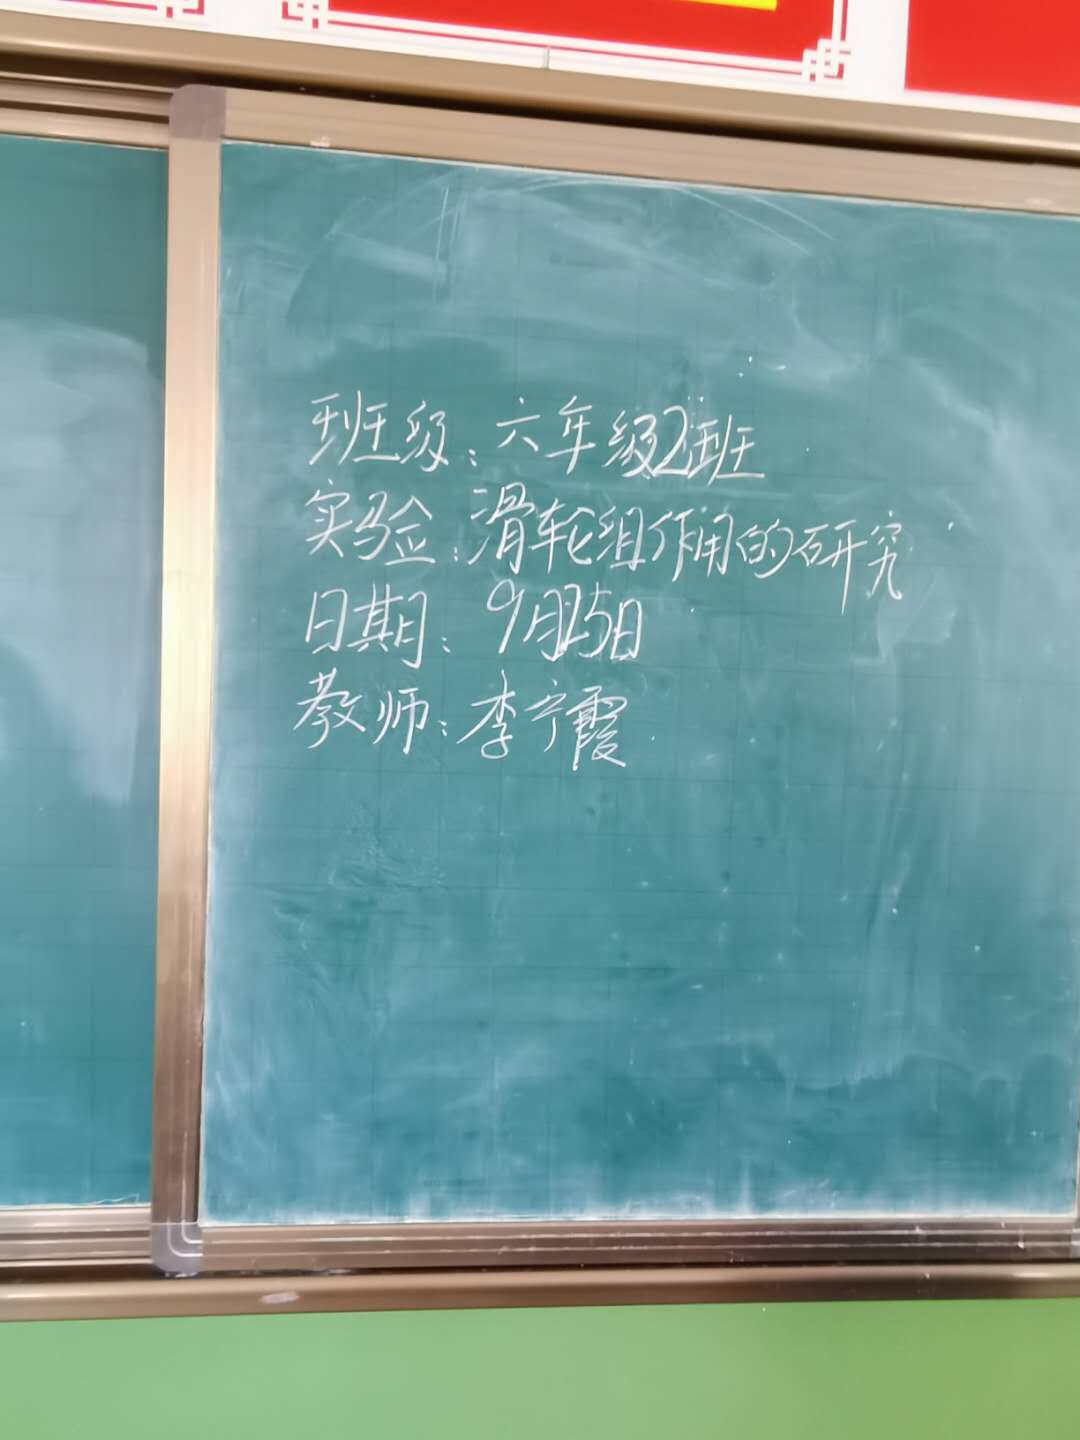 班级：六年级2班
实验：滑轮组作用的研究
日期：9月25日
教师：李宁霞